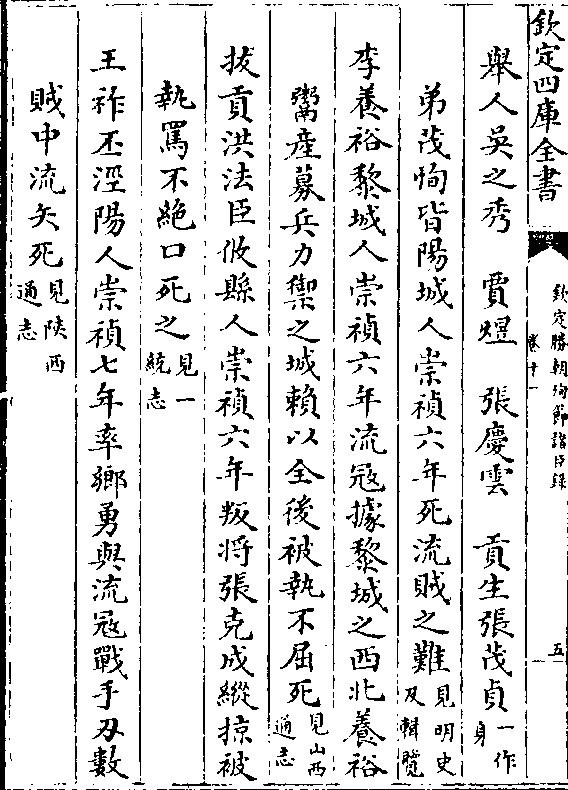 欽定四庫全書
欽定勝朝殉節諸臣錄
卷十一
五
舉人吳之秀 賈煜 張慶雲 貢生張茂貞一作身
弟茂恂皆陽城人崇禎六年死流賊之難見明史及輯覽
李養裕黎城人崇禎六年流冦據黎城之西北養裕
鬻產募兵力禦之城賴以全後被執不屈死見山西通志
拔貢洪法臣攸縣人崇禎六年叛将張克成縱掠被
執罵不絕口死之見一統志
王祚丕涇陽人崇禎七年率鄉勇與流冦戰手刃數
賊中流矢死見陝西通志